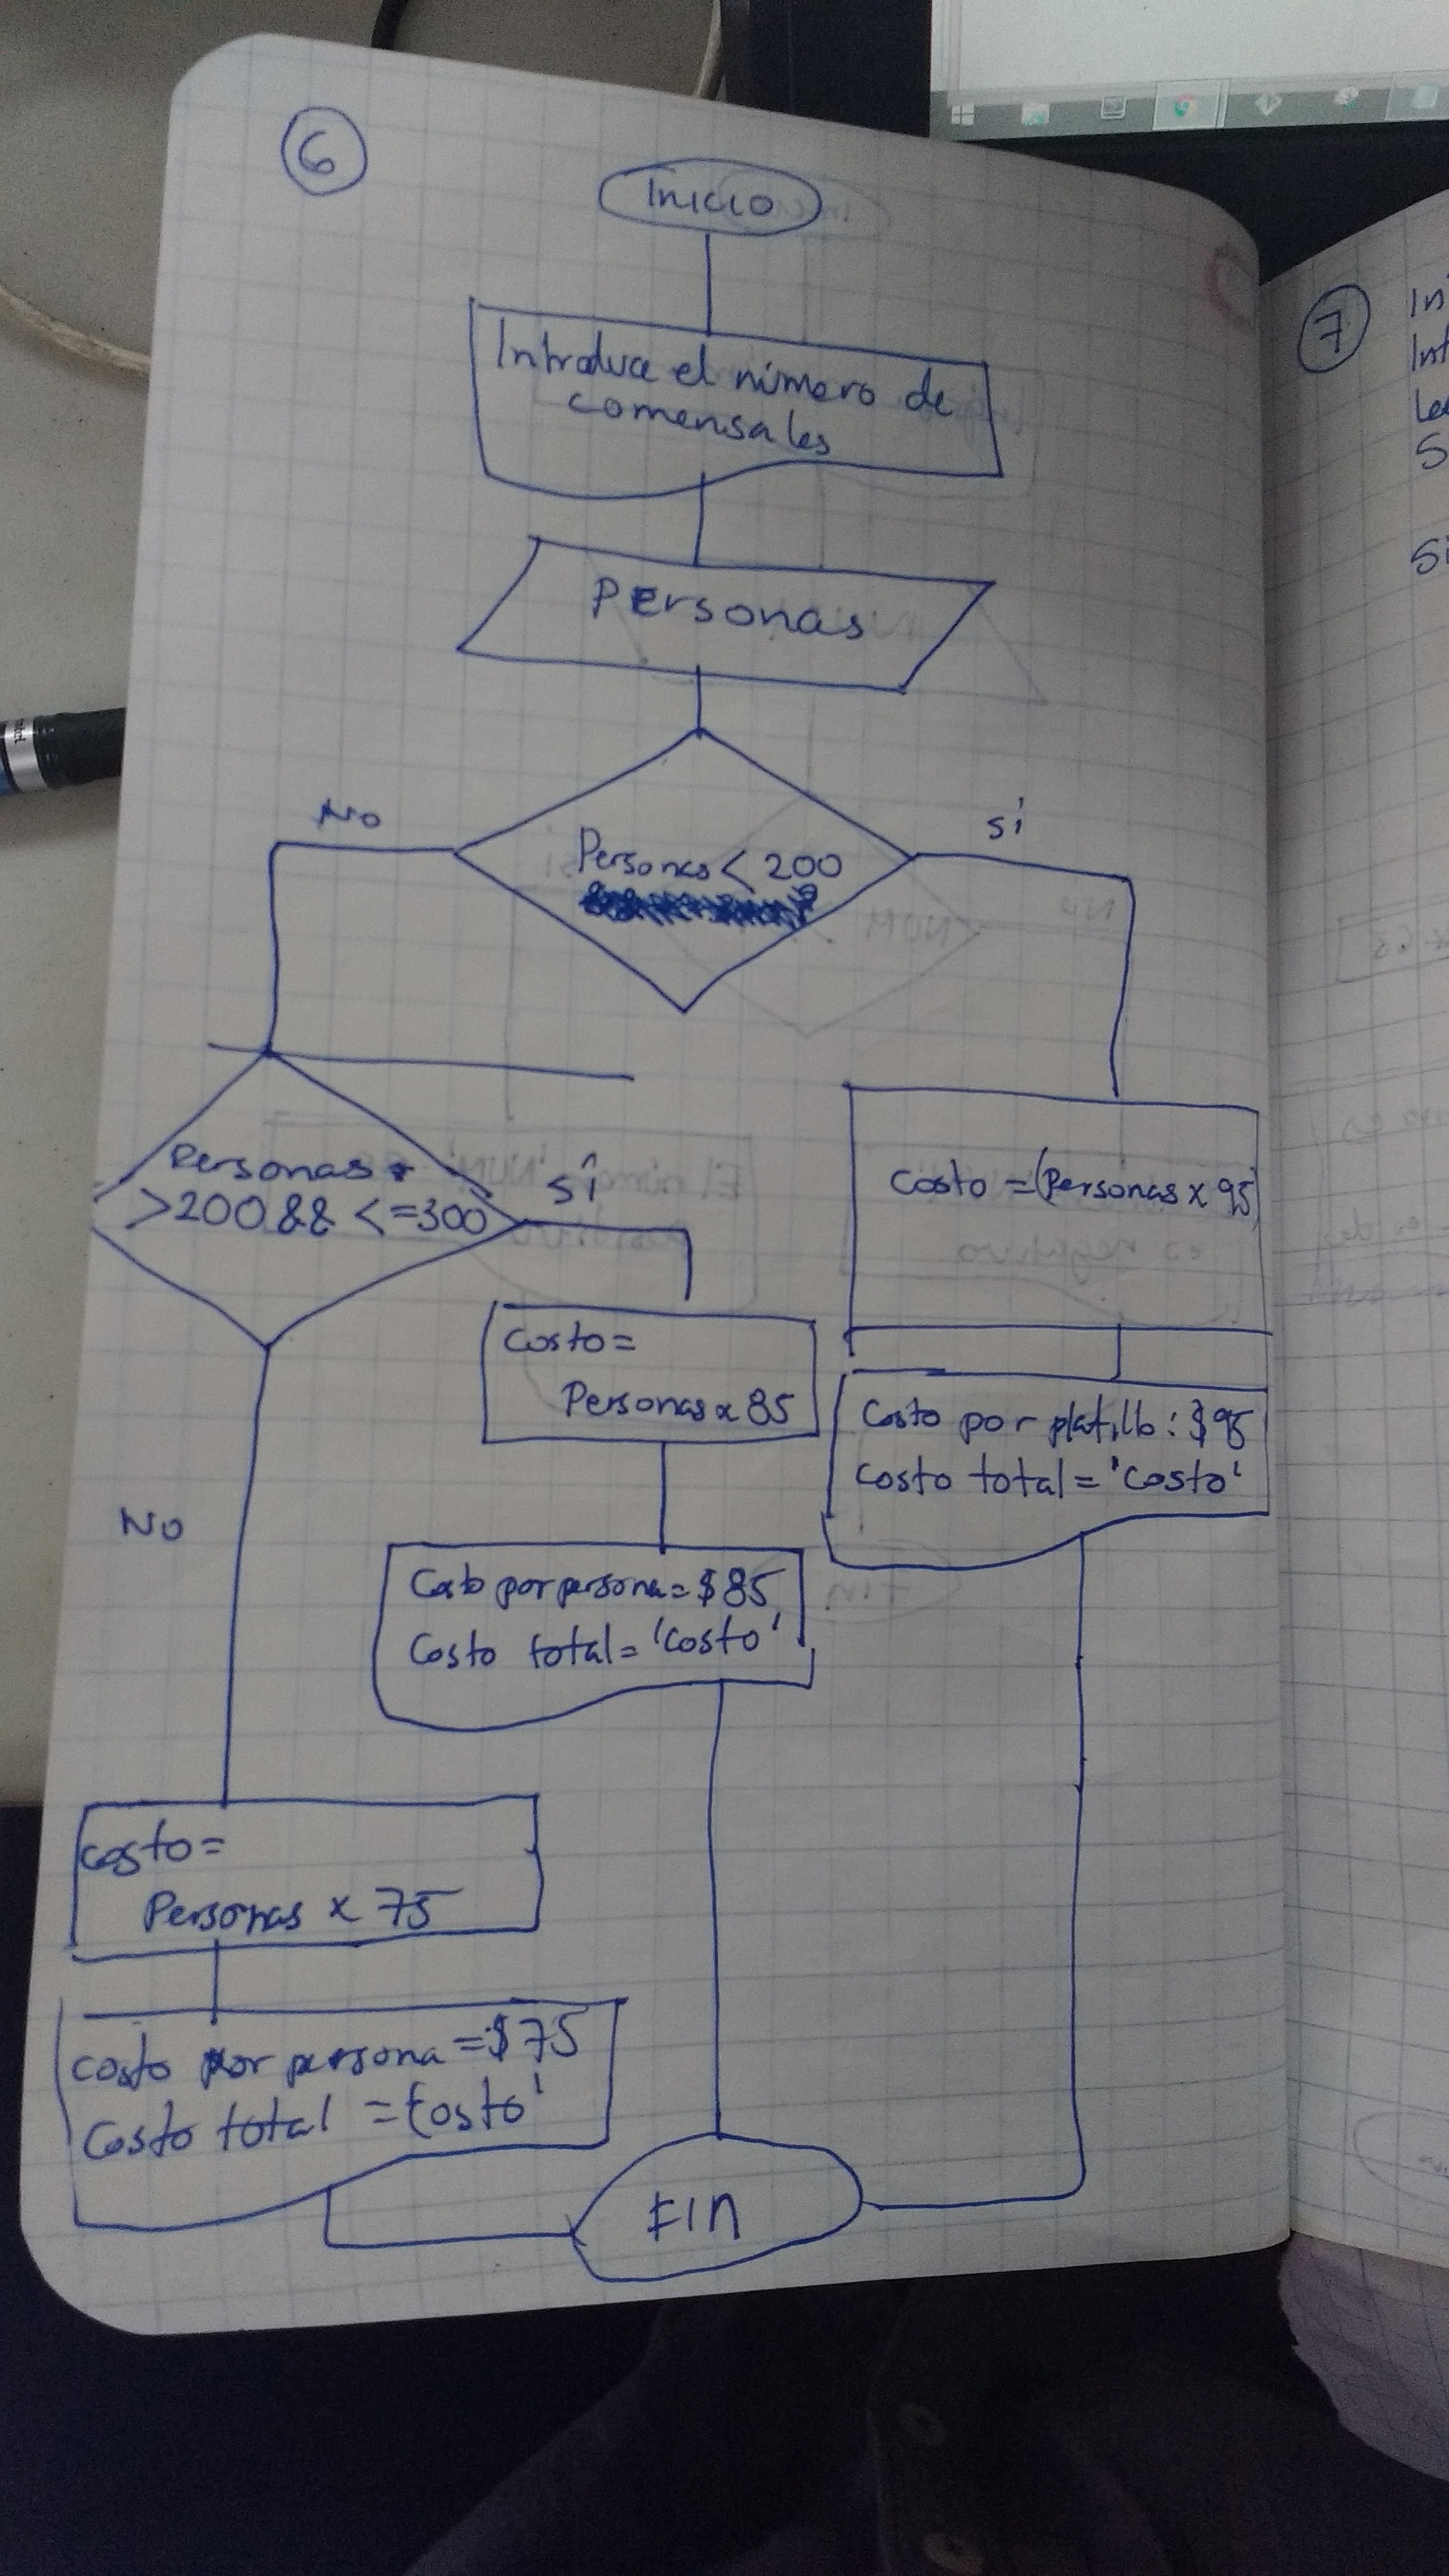 6
Inicio
Introduce el número de
comensales
Personas
Personas < 200
No
si
Personas
>200 && <=300
sí
Costo = (Personas x 95)
Costo =
Personas x 85
Costo por platillo: $95
Costo total = 'Costo'
No
Costo por persona = $85
Costo total = 'Costo'
costo =
Personas x 75
costo por persona = $75
Costo total = 'Costo'
FIN
7
In
Int
Le
S
Si